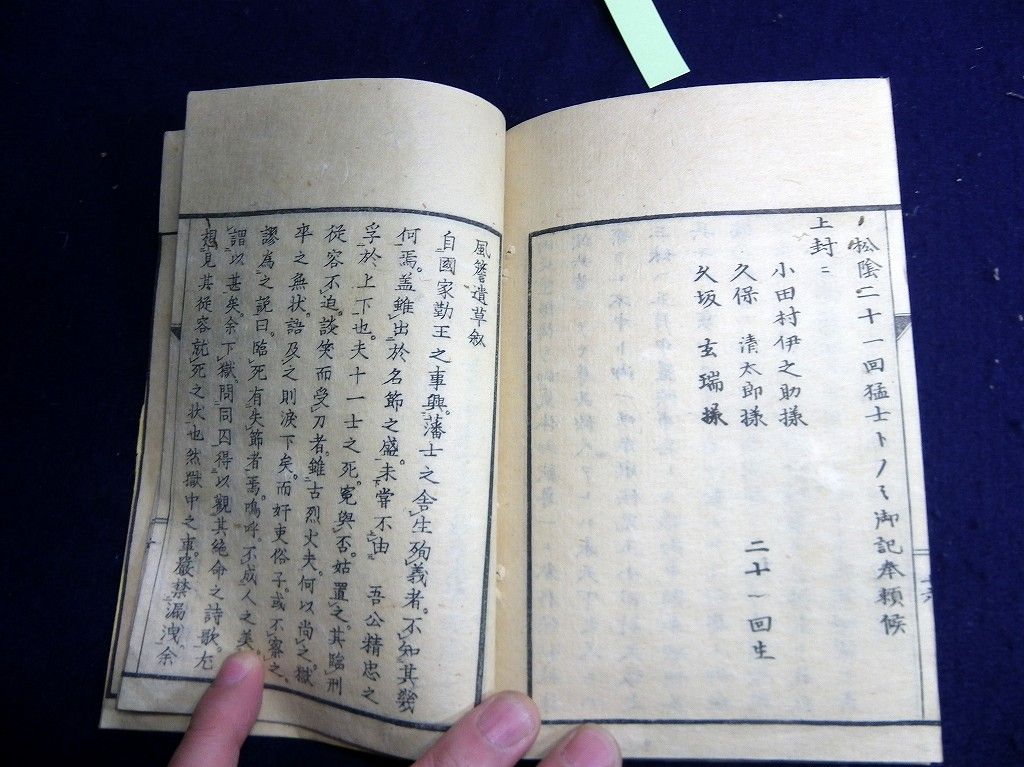 松陰二十一回猛士トノミ御記奉頼候
上封ニ
小田村伊之助様
久保 清太郎様
久坂 玄瑞様
二十一回生
風簷遺草叙
自國家勤王之事興。藩士之舍生殉義者。不知其幾
何焉。蓋雖出於名節之盛。未嘗不由 吾公精忠之
孚於上下也。夫十一士之死。冤與否。姑置之。其臨刑
從容不迫。談笑而受刀者。雖古烈丈夫。何以尚之。獄
卒之無状。語及之則涙下矣。而奸吏俗子。或不察之。
謬為之説曰。臨死有失節者焉。嗚呼。不成人之美。
謂以甚矣。余下獄。問同囚得以觀其絶命之詩歌。尤
想見其從容就死之状也然獄中之事。嚴禁漏洩。余